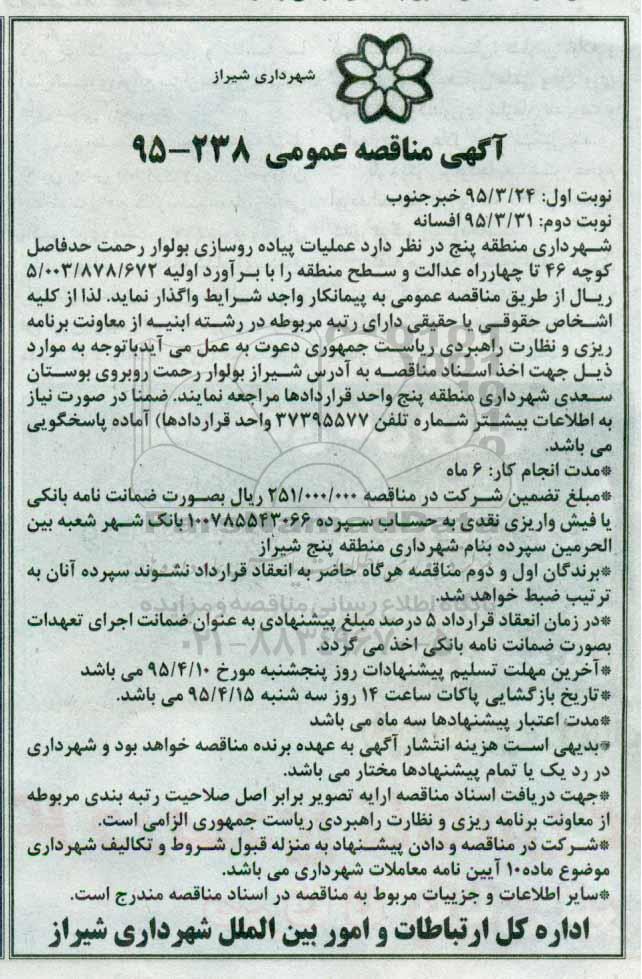 شهرداری شیراز
آگهی مناقصه عمومی ۲۳۸-۹۵
نوبت اول: ۹۵/۳/۲۴ خبرجنوب
نوبت دوم: ۹۵/۳/۳۱ افسانه
شهرداری منطقه پنج در نظر دارد عملیات پیاده روسازی بولوار رحمت حدفاصل
کوچه ۴۶ تا چهارراه عدالت و سطح منطقه را با برآورد اولیه ۵/۰۰۳/۸۷۸/۶۷۲
ریال از طریق مناقصه عمومی به پیمانکار واجد شرایط واگذار نماید. لذا از کلیه
اشخاص حقوقی یا حقیقی دارای رتبه مربوطه در رشته ابنیه از معاونت برنامه
ریزی و نظارت راهبردی ریاست جمهوری دعوت به عمل می آیدباتوجه به موارد
ذیل جهت اخذ اسناد مناقصه به آدرس شیراز بولوار رحمت روبروی بوستان
سعدی شهرداری منطقه پنج واحد قراردادها مراجعه نمایند. ضمنا در صورت نیاز
به اطلاعات بیشتر شماره تلفن ۳۷۳۹۵۵۷۷ واحد قراردادها) آماده پاسخگویی
می باشد.
*مدت انجام کار: ۶ ماه
*مبلغ تضمین شرکت در مناقصه ۲۵۱/۰۰۰/۰۰۰ ریال بصورت ضمانت نامه بانکی
یا فیش واریزی نقدی به حساب سپرده ۱۰۰۷۸۵۵۴۳۰۶۶ بانک شهر شعبه بین
الحرمین سپرده بنام شهرداری منطقه پنج شیراز
*برندگان اول و دوم مناقصه هرگاه حاضر به انعقاد قرارداد نشوند سپرده آنان به
ترتیب ضبط خواهد شد.
*در زمان انعقاد قرارداد ۵ درصد مبلغ پیشنهادی به عنوان ضمانت اجرای تعهدات
بصورت ضمانت نامه بانکی اخذ می گردد.
*آخرین مهلت تسلیم پیشنهادات روز پنجشنبه مورخ ۹۵/۴/۱۰ می باشد
*تاریخ بازگشایی پاکات ساعت ۱۴ روز سه شنبه ۹۵/۴/۱۵ می باشد.
*مدت اعتبار پیشنهادها سه ماه می باشد
*بدیهی است هزینه انتشار آگهی به عهده برنده مناقصه خواهد بود و شهرداری
در رد یک یا تمام پیشنهادها مختار می باشد.
*جهت دریافت اسناد مناقصه ارایه تصویر برابر اصل صلاحیت رتبه بندی مربوطه
از معاونت برنامه ریزی و نظارت راهبردی ریاست جمهوری الزامی است.
*شرکت در مناقصه و دادن پیشنهاد به منزله قبول شروط و تکالیف شهرداری
موضوع ماده۱۰ آیین نامه معاملات شهرداری می باشد.
*سایر اطلاعات و جزییات مربوط به مناقصه در اسناد مناقصه مندرج است.
اداره کل ارتباطات و امور بین الملل شهرداری شیراز